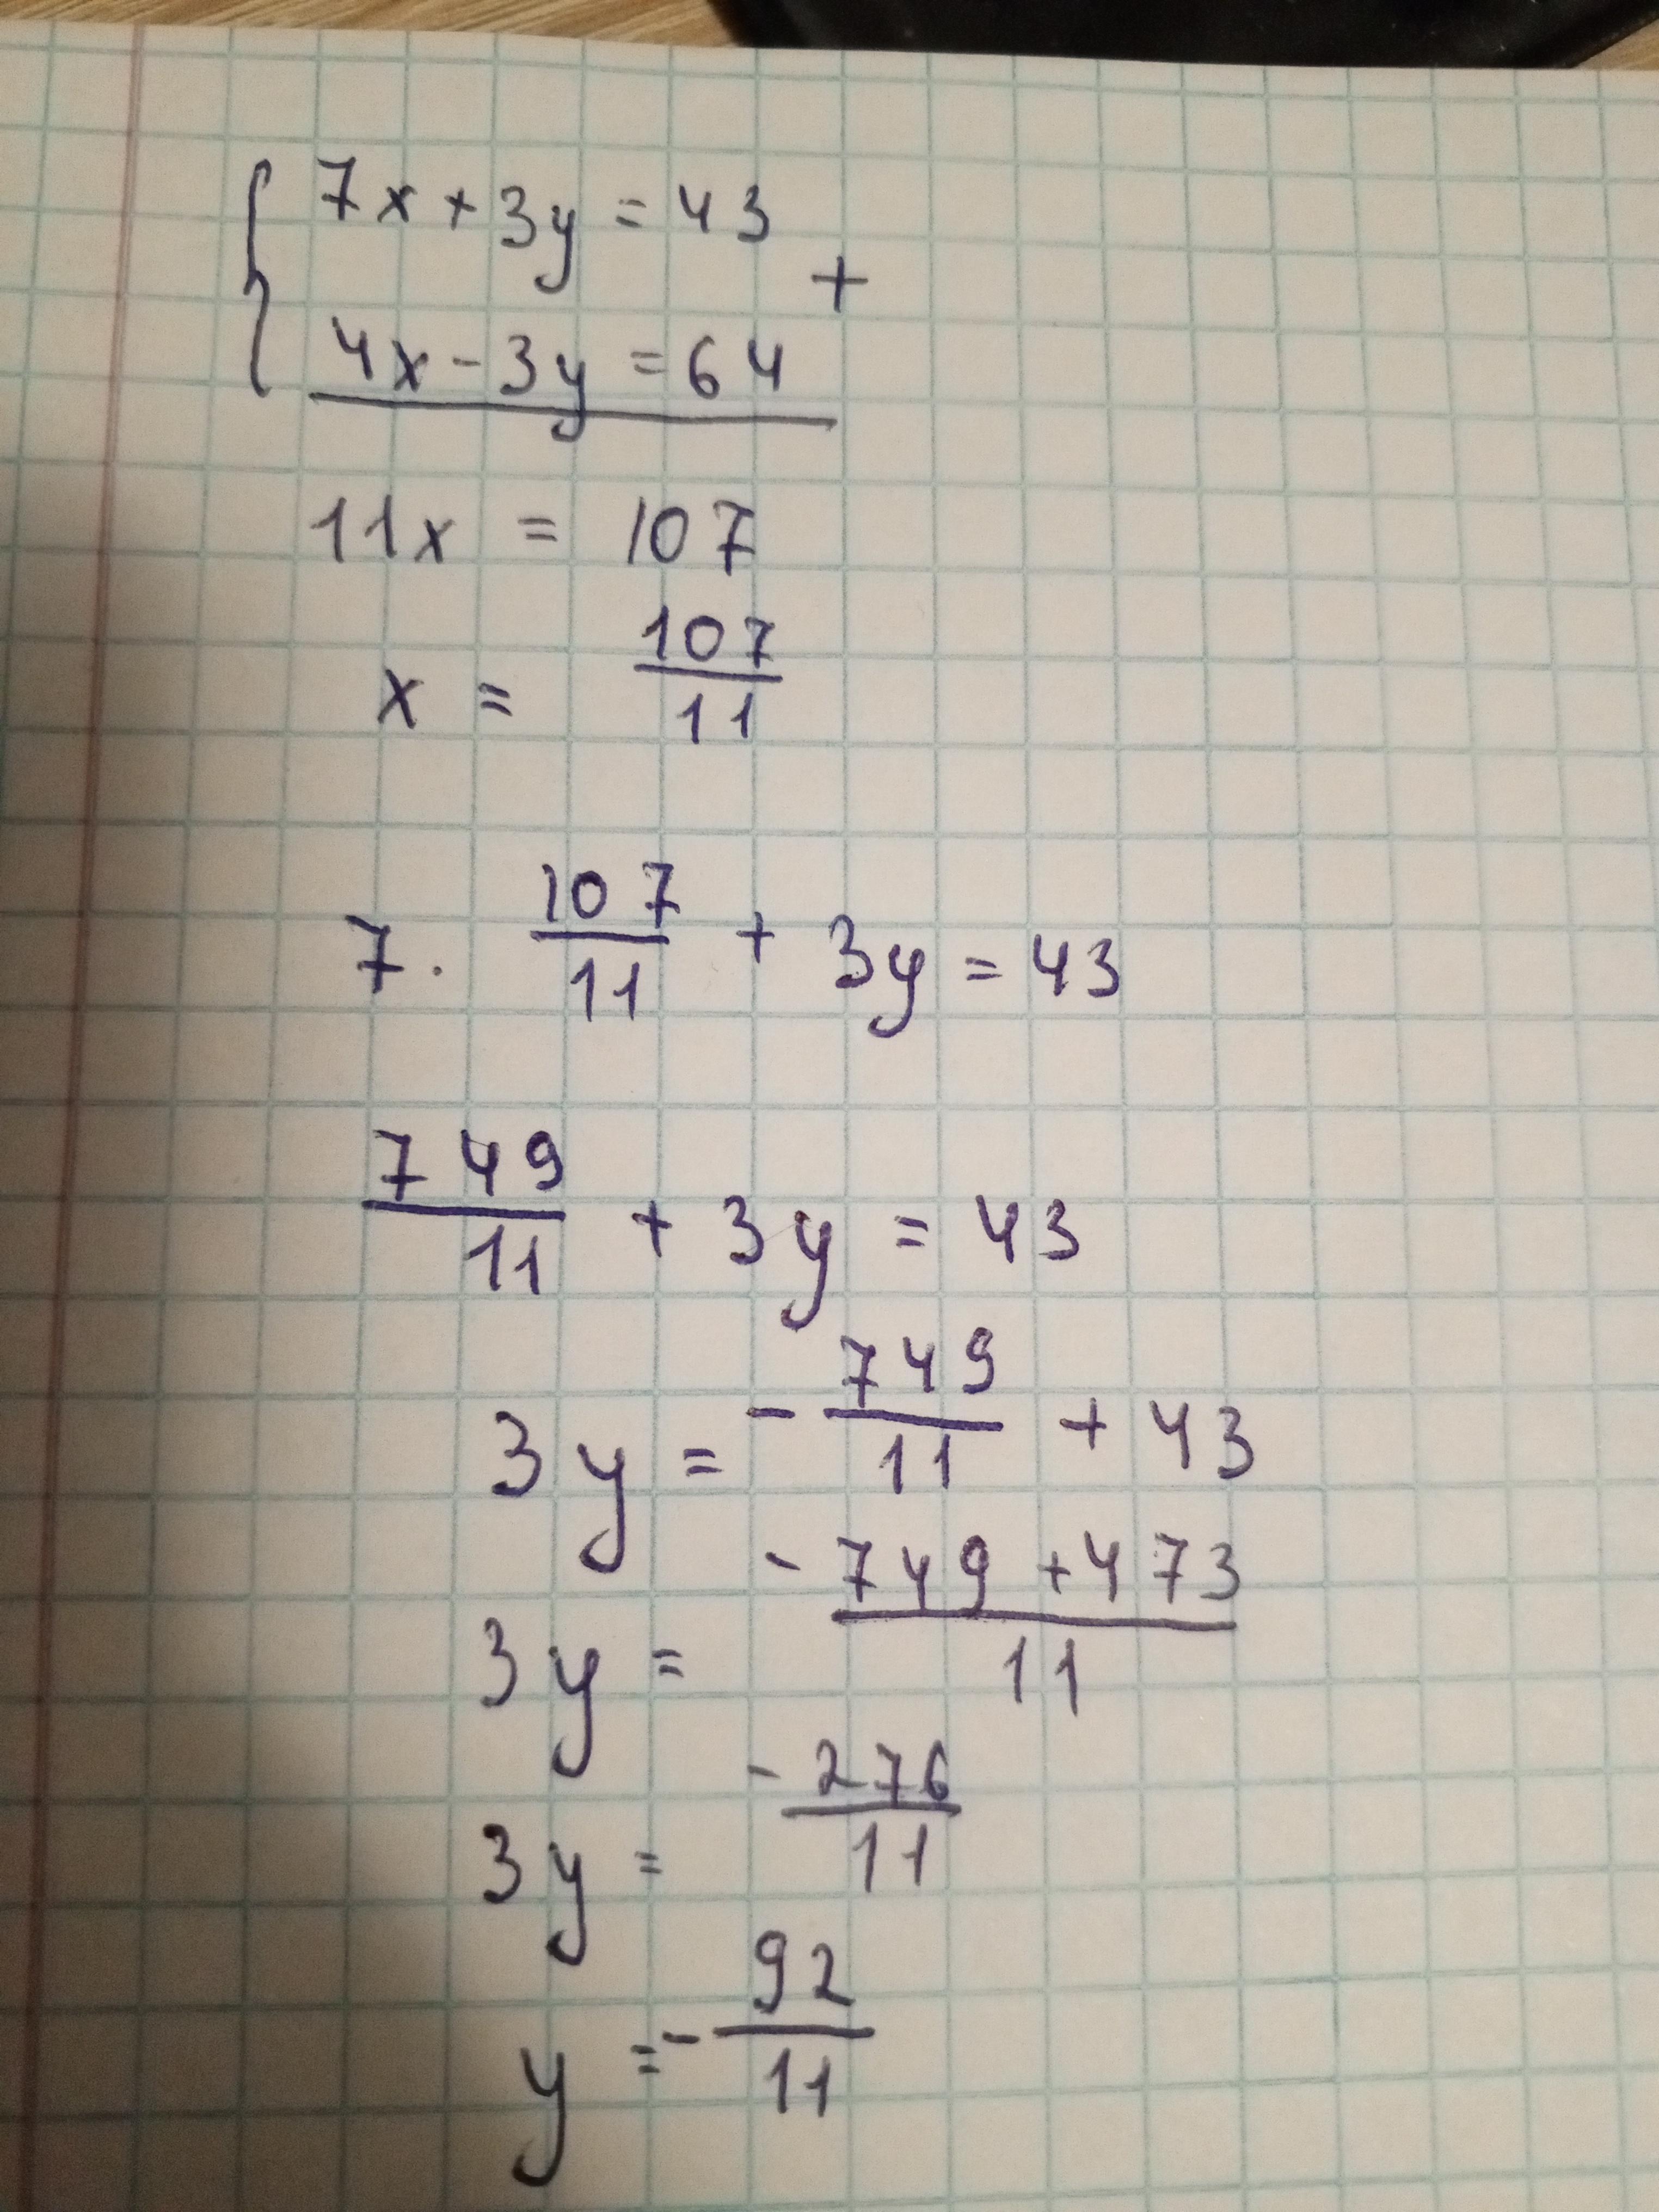 { 7x + 3y = 43
+
4x - 3y = 64
11x = 107
x = 107/11
7 · 107/11 + 3y = 43
749/11 + 3y = 43
3y = - 749/11 + 43
3y = - 749 + 473/11
3y = - 276/11
y = - 92/11